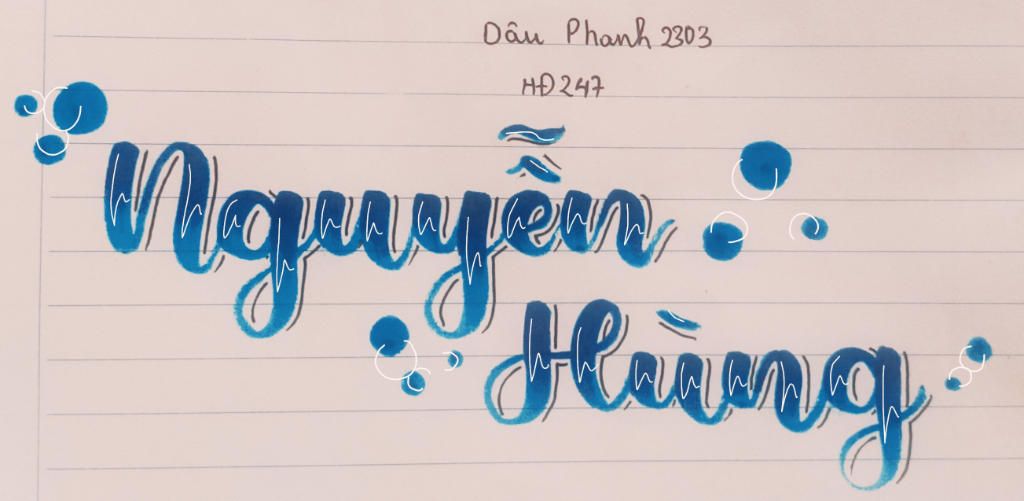 Dâu Phanh 2303
HĐ247
Nguyễn
Hùng